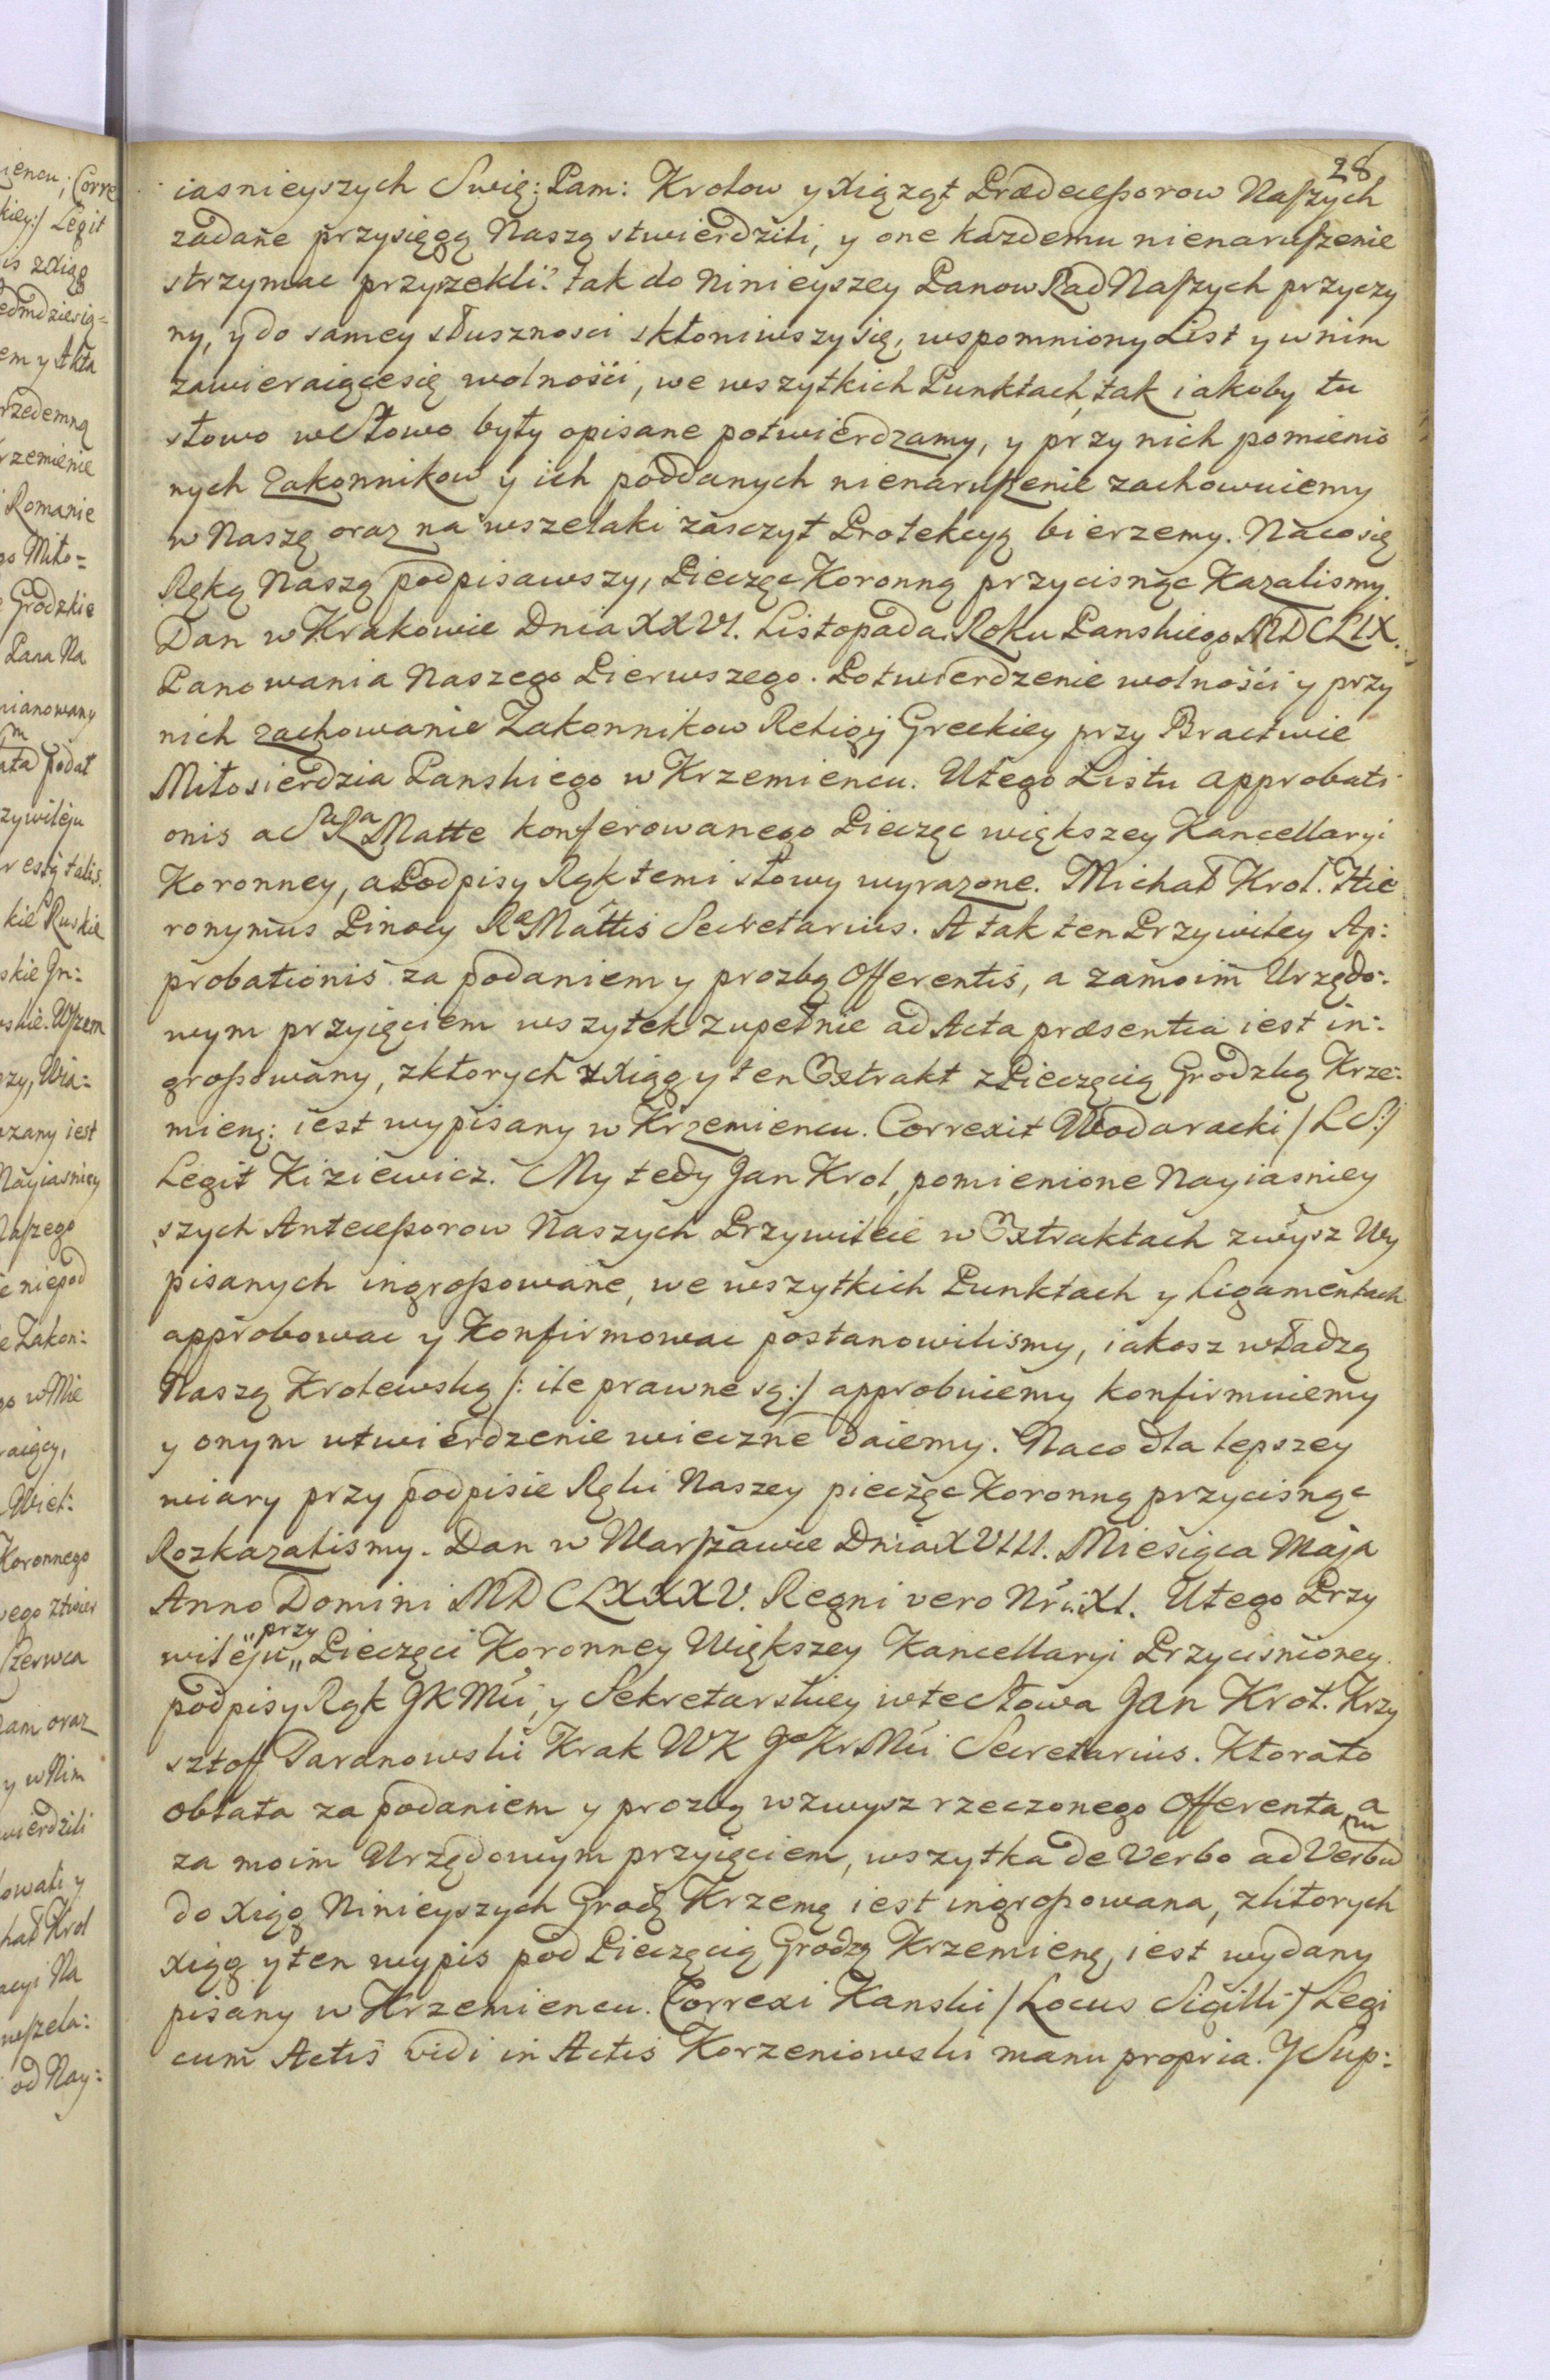 28
iasnieyszych Swię: Pam: Krolow y Xiąząt Prædecessorow Naszych
zadane przysięgą Naszą stwierdzili, y one kazdemu nienaruszenie
strzymac przyrzekli: tak do Ninieyszey Panow Rad Naszych przyczy
ny, y do samey słusznosci skłoniwszy się, wspomniony List y w nim
zawieraiącesię wolności, we wszytkich Punktach, tak iakoby tu
słowo w Słowo były opisane potwierdzamy, y przy nich pomienio
nych Zakonnikow y ich poddanych nienaruszenie zachowuiemy
w Naszą oraz na wszelaki zasczyt Protekcyą bierzemy. Naco się
Ręką Naszą podpisawszy, Pieczęc Koronną przycisnąc Kazalismy.
Dan w Krakowie Dnia XXVI. Listopada. Roku Panskiego MDCLIX.
Panowania Naszego Pierwszego. Potwierdzenie wolności y przy
nich zachowanie Zakonnikow Religij Greckiey przy Bractwie
Miłosierdzia Panskiego w Krzemiencu. U tego Listu approbati
onis a Sa Ra Matte konferowanego Pieczęc większey Kancellaryi
Koronney, a Podpisy Rąk temi słowy wyrazone. Michał Krol. Hie
ronymus Pinocy Ra Mattis Secretarius. A tak ten Przywiley Ap:
probationis za podaniem y prozbą Offerentis, a za moim Urzędo:
wym przyięciem wszytek zupełnie ad Acta præsentia iest in:
grossowany, z ktorych z Xiąg y ten Extrakt z Pieczęcią Grodzką Krze:
mienę: iest wypisany w Krzemiencu. Correxit Wodaracki /LS:/
Legit Kiziewicz. My tedy Jan Krol, pomienione Nayiasniey
szych Antecessorow Naszych Przywileie w Extraktach zwysz Wy
pisanych ingrossowane, we wszytkich Punktach y Ligamentach
approbowac y Konfirmowac postanowilismy, iakosz władzą
Naszą Krolewską /: ile prawne są :/ approbuiemy konfirmuiemy
y onym utwierdzenie wieczne daiemy. Naco dla lepszey
wiary przy podpisie Ręki Naszey pieczęc Koronną przycisnąc
Rozkazalismy. Dan w Warszawie Dnia XVIII. Miesiąca Maja
Anno Domini MDCLXXXV. Regni vero Nri XI. U tego Przy
wileju „przy„ Pieczęci Koronney Większey Kancellaryi Przycisnioney
podpisy Rąk JKMci, y Sekretarskiey w te Słowa Jan Krol. Krzy
sztoff Daranowski Krak WK Jo Kr Mci Secretarius. Ktorato
oblata za podaniem y prozbą wzwysz rzeczonego Offerenta, a
za moim Urzędowym przyięciem, wszytka de Verbo ad Verbum
do Xiąg Ninieyszych Grodz Krzemę iest ingrossowana, z ktorych
Xiąg y ten wypis pod Pieczęcią Grodzą Krzemienę, iest wydany
pisany w Krzemiencu. Correxi Kanski /Locus Sigilli/ Legi
cum Actis vidi in Actis Korzeniowski manu propria. Y Sup: